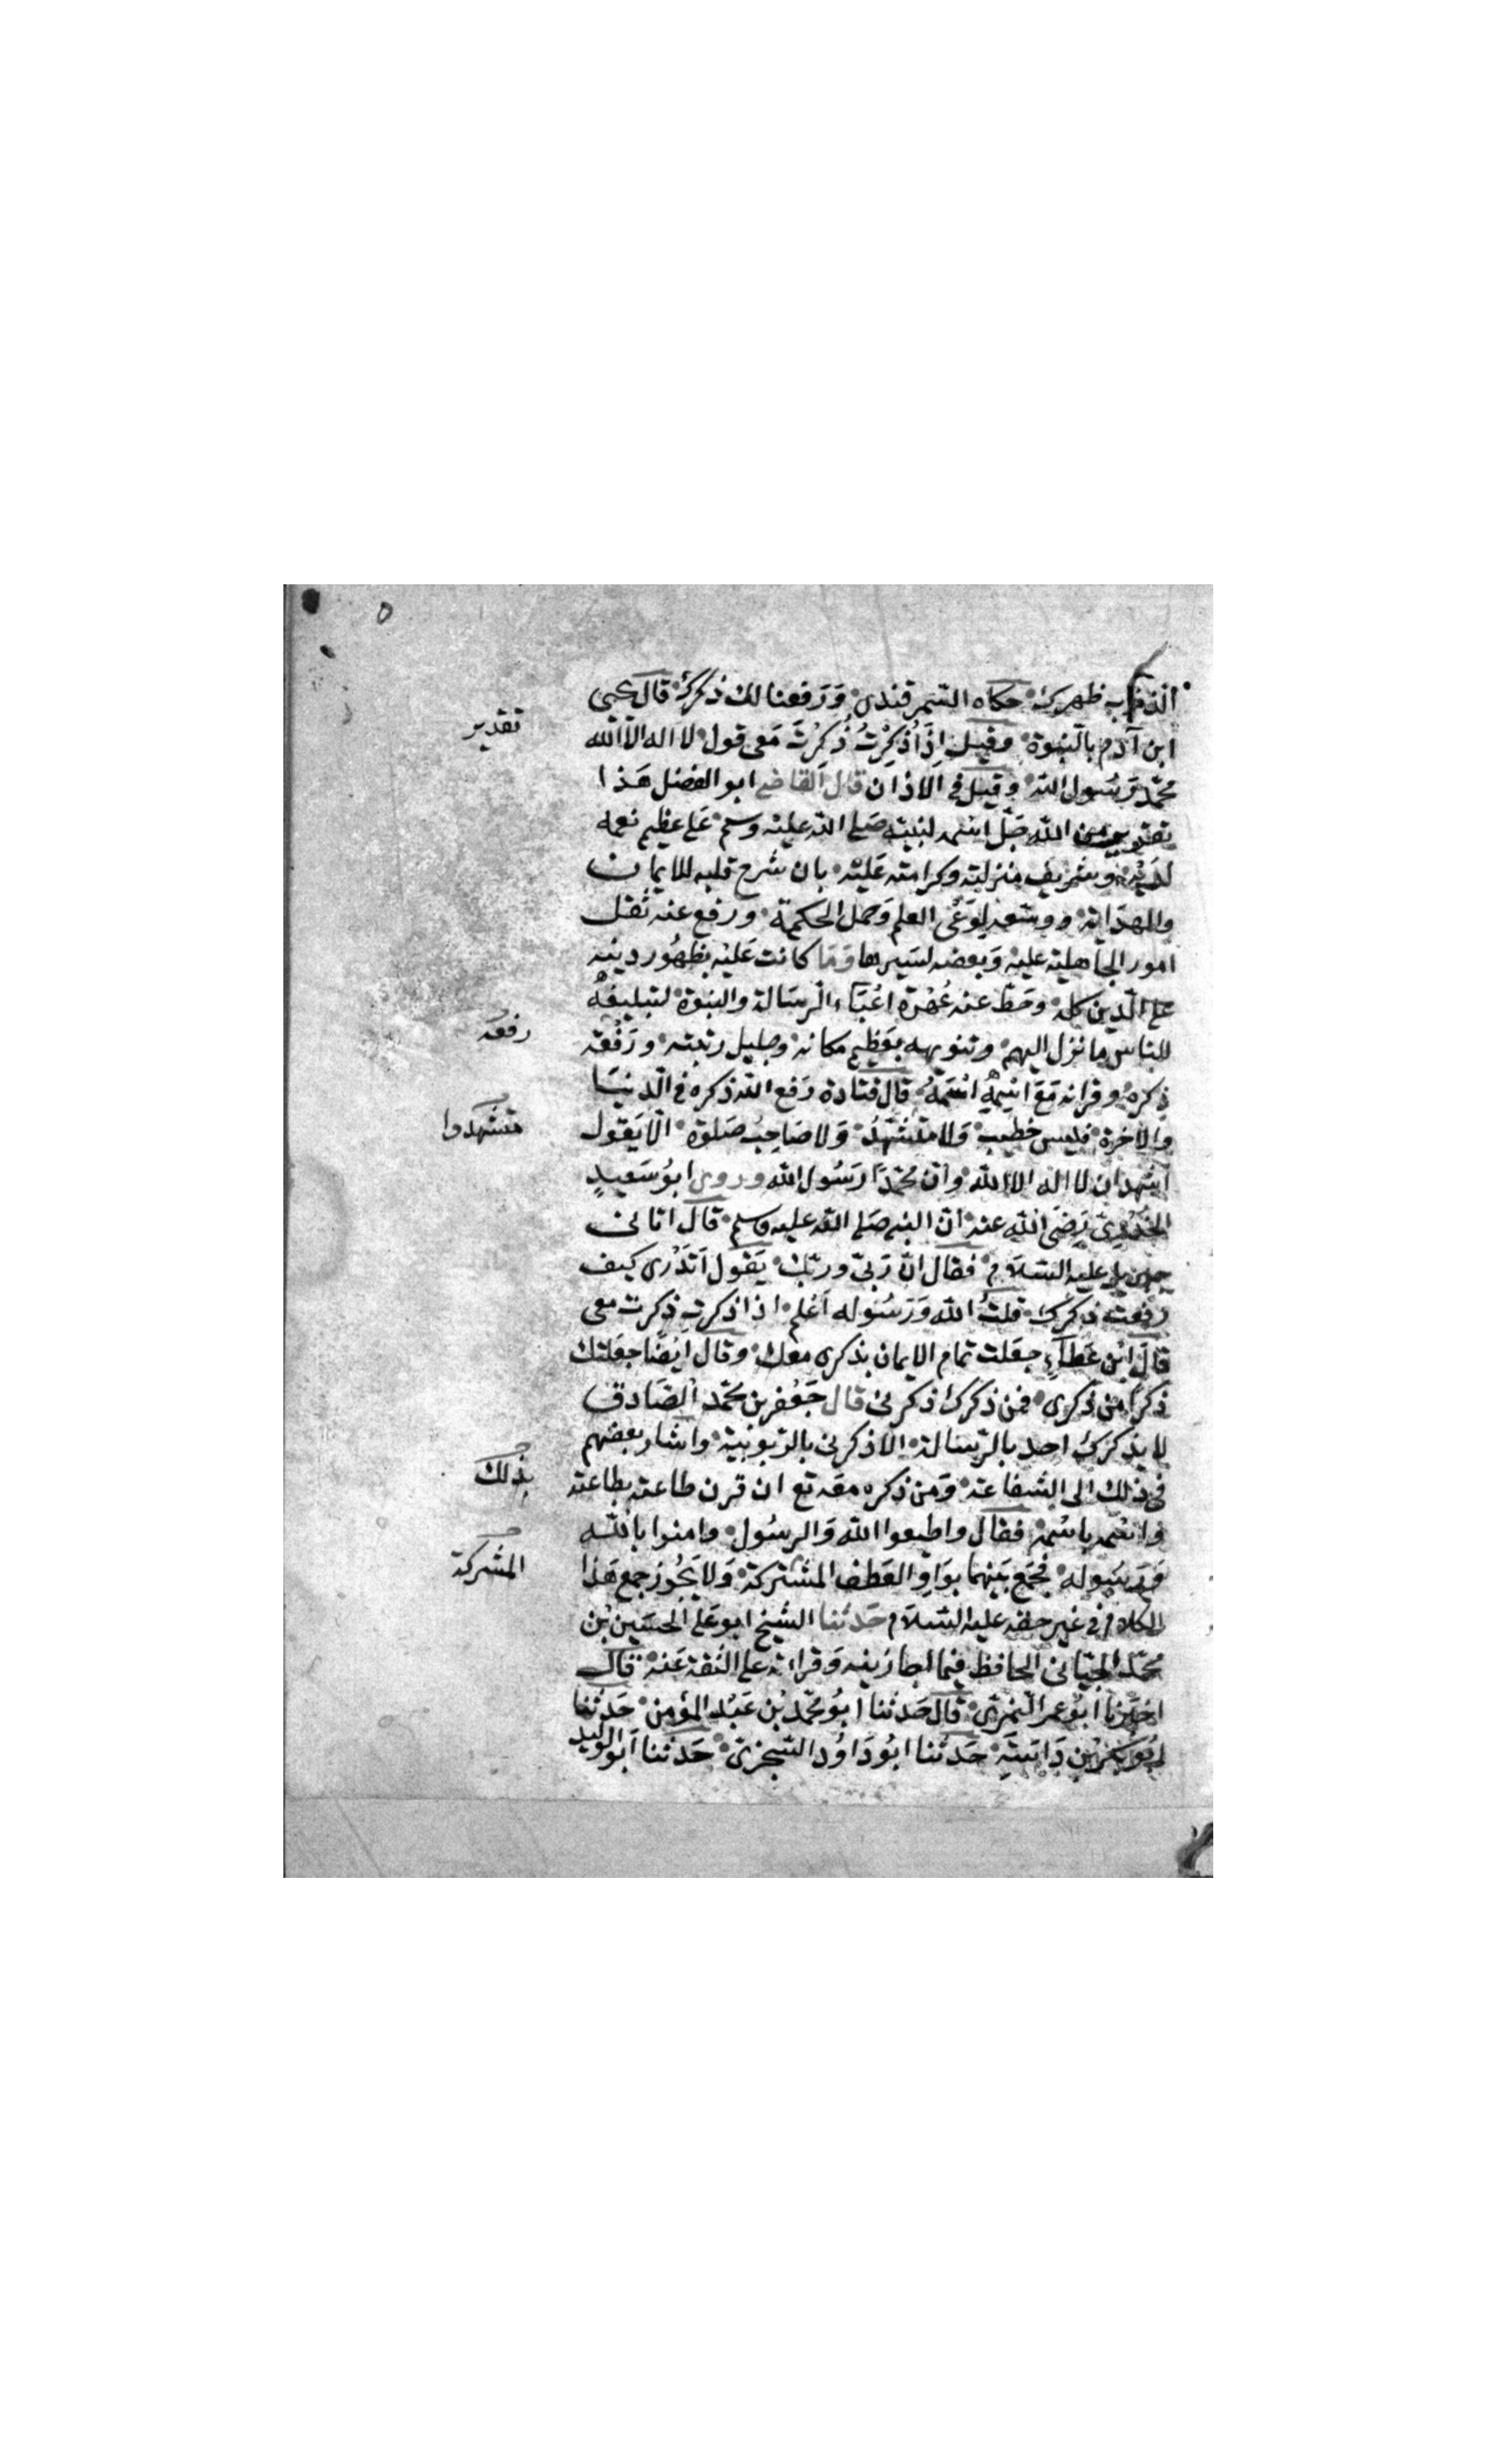 الذنوب ظهرك حكاه السمرقندى ورفعنا لك ذكرك قال يحيى
ابن آدم بالنبوة وقيل اذا ذُكِرْتُ ذُكِرْتَ معى قول لا اله الا الله
تقدير
محمد رسول الله وقيل فى الاذان قال القاضى ابو الفضل هذا
تقرير من الله جل اسمه لنبيه صلى الله عليه وسلم على عظيم نعمه
لديه وشريف منزلته وكرامته عليه بان شرح قلبه للايمان
والهداية ووسعه لوعى العلم وحمل الحكمة ورفع عنه ثقل
امور الجاهلية عليه وبغضه لسيرها وما كانت عليه بظهور دينه
على الدين كله وحط عنه عُهْدة اعْبَاء الرسالة والنبوة لتبليغه
للناس ما نزل اليهم وتنويهه بعظيم مكانه وجليل رتبته ورَفْعَه
رفعه
ذكره وقرانه مع اسمه اسمَهُ قال قتادة رفع الله ذكره فى الدنيا
والاخرة فليس خطيب ولا متشهد ولا صاحب صلوة الا يقول
متشهدوا
اشهد ان لا اله الا الله وان محمدا رسول الله وروى ابو سعيد
الخدرى رضى الله عنه ان النبى صلى الله عليه وسلم قال اتانى
جبريل عليه السلام فقال ان ربى وربك يقول اتدرى كيف
رفعت ذكرك قلت الله ورسوله اعلم اذا ذكرت ذكرت معى
قال ابن عطاء جعلت تمام الايمان بذكرى معك وقال ايضا جعلتك
ذكرا من ذكرى فمن ذكرك ذكرنى قال جعفر بن محمد الصادق
لا يذكرك احد بالرسالة الا ذكرنى بالربوبية واشار بعضهم
فى ذلك الى الشفاعة ومن ذكره معه تع ان قرن طاعته بطاعته
بذلك
واسمه باسمه فقال واطيعوا الله والرسول وامنوا بالله
ورسوله فجمع بينهما بواو العطف المشتركة ولا يجوز جمع هذا
المشركة
الكلام فى غير حقه عليه السلام حدثنا الشيخ ابو على الحسين بن
محمد الجيانى الحافظ فيما اجازنيه وقراته على الثقة عنه قال
اخبرنا ابو عمر النمرى قال حدثنا ابو محمد بن عبد المؤمن حدثنا
ابو بكر بن داسة حدثنا ابو داود السجزى حدثنا ابو الوليد